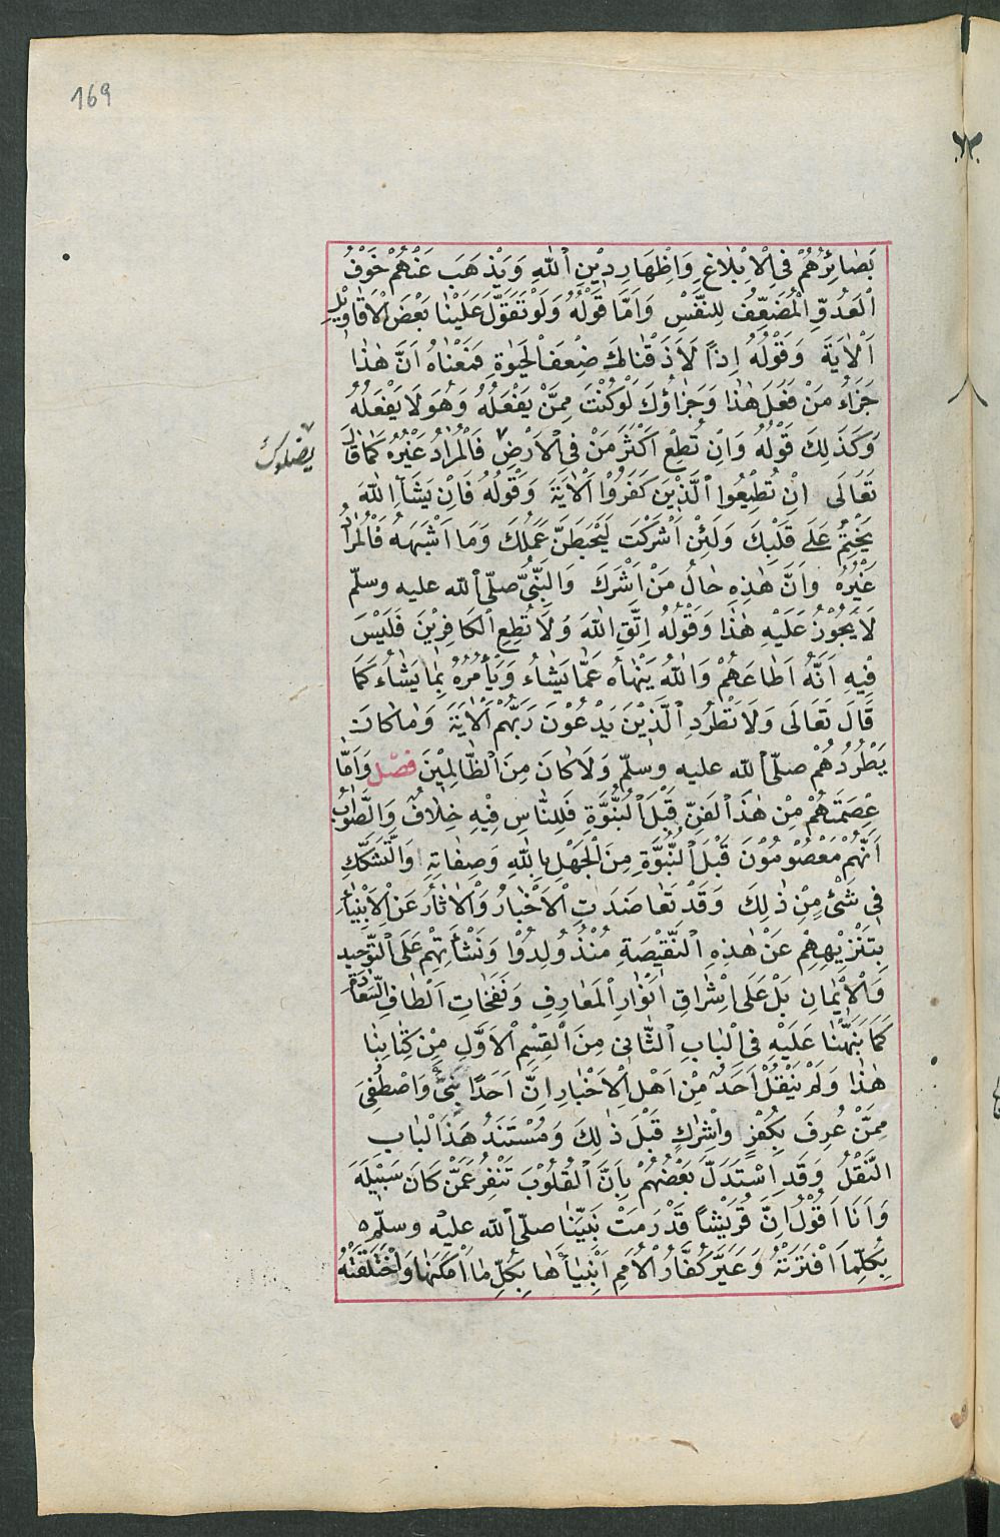 169
بَصَائِرُهُمْ فِي الْاِبْلَاغِ وَاِظْهَارِ دِيْنِ اللهِ وَيَذْهَبَ عَنْهُمْ خَوْفُ
الْعَدُوِّ الْمُضَعِّفُ لِلنَّفْسِ وَاَمَّا قَوْلُهُ وَلَوْ تَقَوَّلَ عَلَيْنَا بَعْضَ الْاَقَاوِيْلِ
اَلْاٰيَةَ وَقَوْلُهُ اِذًا لَاَذَقْنَاكَ ضِعْفَ الْحَيٰوةِ فَمَعْنَاهُ اَنَّ هٰذَا
جَزَاءُ مَنْ فَعَلَ هٰذَا وَجَزَاؤُكَ لَوْ كُنْتَ مِمَّنْ يَفْعَلُهُ وَهُوَ لَا يَفْعَلُهُ
وَكَذَلِكَ قَوْلُهُ وَاِنْ تُطِعْ اَكْثَرَ مَنْ فِي الْاَرْضِ فَالْمُرَادُ غَيْرُهُ كَمَا قَالَ
يضلوك
تَعَالَى اِنْ تُطِيْعُوا الَّذِيْنَ كَفَرُوْا الْاٰيَةَ وَقَوْلُهُ فَاِنْ يَشَأِ اللهُ
يَخْتِمْ عَلَى قَلْبِكَ وَلَئِنْ اَشْرَكْتَ لَيَحْبَطَنَّ عَمَلُكَ وَمَا اَشْبَهَهُ فَالْمُرَادُ
غَيْرُهُ وَاَنَّ هٰذِهِ حَالُ مَنْ اَشْرَكَ وَالنَّبِيُّ صلّى الله عليه وسلّم
لَا يَجُوْزُ عَلَيْهِ هٰذَا وَقَوْلُهُ اِتَّقِ اللهَ وَلَا تُطِعِ الْكَافِرِيْنَ فَلَيْسَ
فِيْهِ اَنَّهُ اَطَاعَهُمْ وَاللهُ يَنْهَاهُ عَمَّا يَشَاءُ وَيَأْمُرُهُ بِمَا يَشَاءُ كَمَا
قَالَ تَعَالَى وَلَا تَطْرُدِ الَّذِيْنَ يَدْعُوْنَ رَبَّهُمْ اَلْاٰيَةَ وَمَا كَانَ
يَطْرُدُهُمْ صلّى الله عليه وسلّم وَلَا كَانَ مِنَ الظَّالِمِيْنَ فصْل وَاَمَّا
عِصْمَتُهُمْ مِنْ هٰذَا الْفَنِّ قَبْلَ النُّبُوَّةِ فَلِلنَّاسِ فِيْهِ خِلَافٌ وَالصَّوَابُ
اَنَّهُمْ مَعْصُوْمُوْنَ قَبْلَ النُّبُوَّةِ مِنَ الْجَهْلِ بِاللهِ وَصِفَاتِهِ وَالتَّشَكُّكِ
فِي شَيْءٍ مِنْ ذٰلِكَ وَقَدْ تَعَاضَدَتِ الْاَخْبَارُ وَالْاٰثَارُ عَنِ الْاَنْبِيَاءِ
بِتَنْزِيْهِهِمْ عَنْ هٰذِهِ النَّقِيْصَةِ مُنْذُ وُلِدُوْا وَنَشْأَتِهِمْ عَلَى التَّوْحِيد
وَالْاِيْمَانِ بَلْ عَلَى اِشْرَاقِ اَنْوَارِ الْمَعَارِفِ وَنَفَحَاتِ اَلْطَافِ السَّعَادَةِ
كَمَا نَبَّهْنَا عَلَيْهِ فِي الْبَابِ الثَّانِي مِنَ الْقِسْمِ الْاَوَّلِ مِنْ كِتَابِنَا
هٰذَا وَلَمْ يَنْقُلْ اَحَدٌ مِنْ اَهْلِ الْاَخْبَارِ اِنَّ اَحَدًا نُبِّئَ وَاصْطُفِيَ
مِمَّنْ عُرِفَ بِكُفْرٍ وَاِشْرَاكٍ قَبْلَ ذٰلِكَ وَمُسْتَنَدُ هَذَا الْبَابِ
النَّقْلُ وَقَدِ اسْتَدَلَّ بَعْضُهُمْ بِاَنَّ الْقُلُوْبَ تَنْفِرُ عَمَّنْ كَانَ سَبِيْلَهُ
وَاَنَا اَقُوْلُ اِنَّ قُرَيْشًا قَدْ رَمَتْ نَبِيَّنَا صلّى الله عليه وسلّم
بِكُلِّ مَا افْتَرَتْهُ وَعَيَّرَ كُفَّارُ الْاُمَمِ اَنْبِيَاءَهَا بِكُلِّ مَا اَمْكَنَهَا وَاخْتَلَقَتْهُ